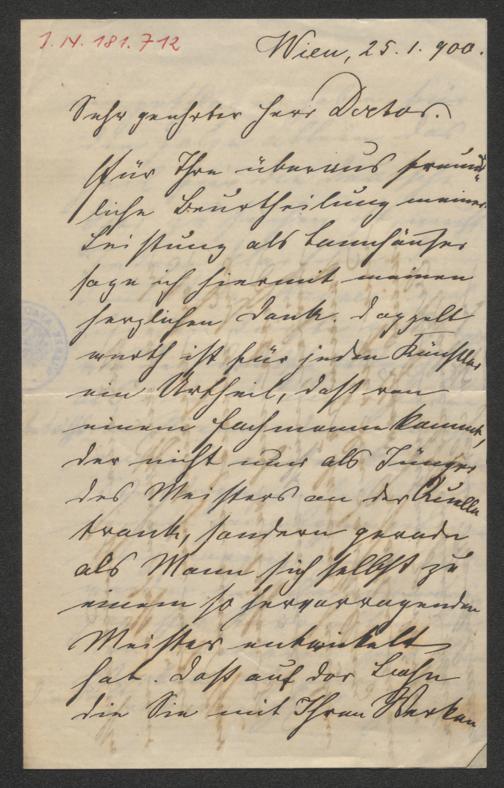 J.N. 181.712
Wien, 25.1.900.
Sehr geehrter Herr Doctor.
Für Ihre überaus freund-
liche Beurtheilung meiner
Leistung als Tannhäuser
sage ich hiermit meinen
herzlichen Dank. Doppelt
werth ist für jeden Künstler
ein Urtheil, daß von
einem Fachmann kommt,
der nicht nur als Jünger
des Meisters an der Quelle
trank, sondern gerade
als Mann sich selbst zu
einem so hervorragenden
Meister entwickelt
hat. Daß auf der Bahn
die Sie mit Ihren Werken